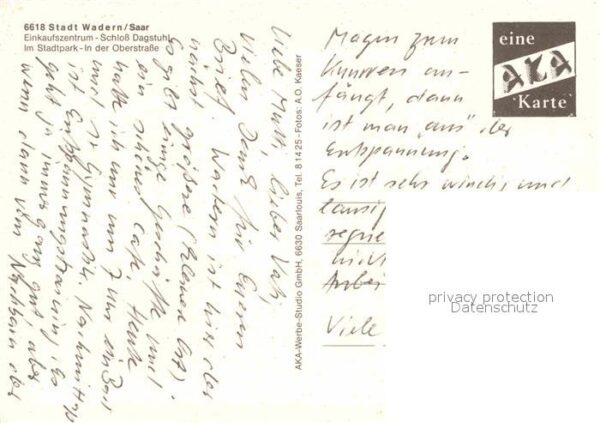 6618 Stadt Wadern/Saar
Einkaufszentrum - Schloß Dagstuhl
Im Stadtpark - In der Oberstraße
Liebe Mutti, lieber Vati,
Vielen Dank für Euren
Brief. Wadern ist hier der
nächst größere (kleinere Ort).
So gibt einige Geschäfte und
ein schönes Café. Heute
hatte ich um 7 Uhr
und Gymnastik. Nachmittag
ist Entspannungstraining. Es
geht ja immer ganz gut, aber
wenn dann vom Nachbarn der
AKA-Werbe-Studio GmbH, 6630 Saarlouis, Tel. 81425 - Fotos: A.O. Kaeser
eine
AKA
Karte
Magen zum
Knurren an-
fängt, dann
ist man "aus" der
Entspannung.
Es ist sehr windig und
lausig
regne
nicht
Viele
privacy protection
Datenschutz